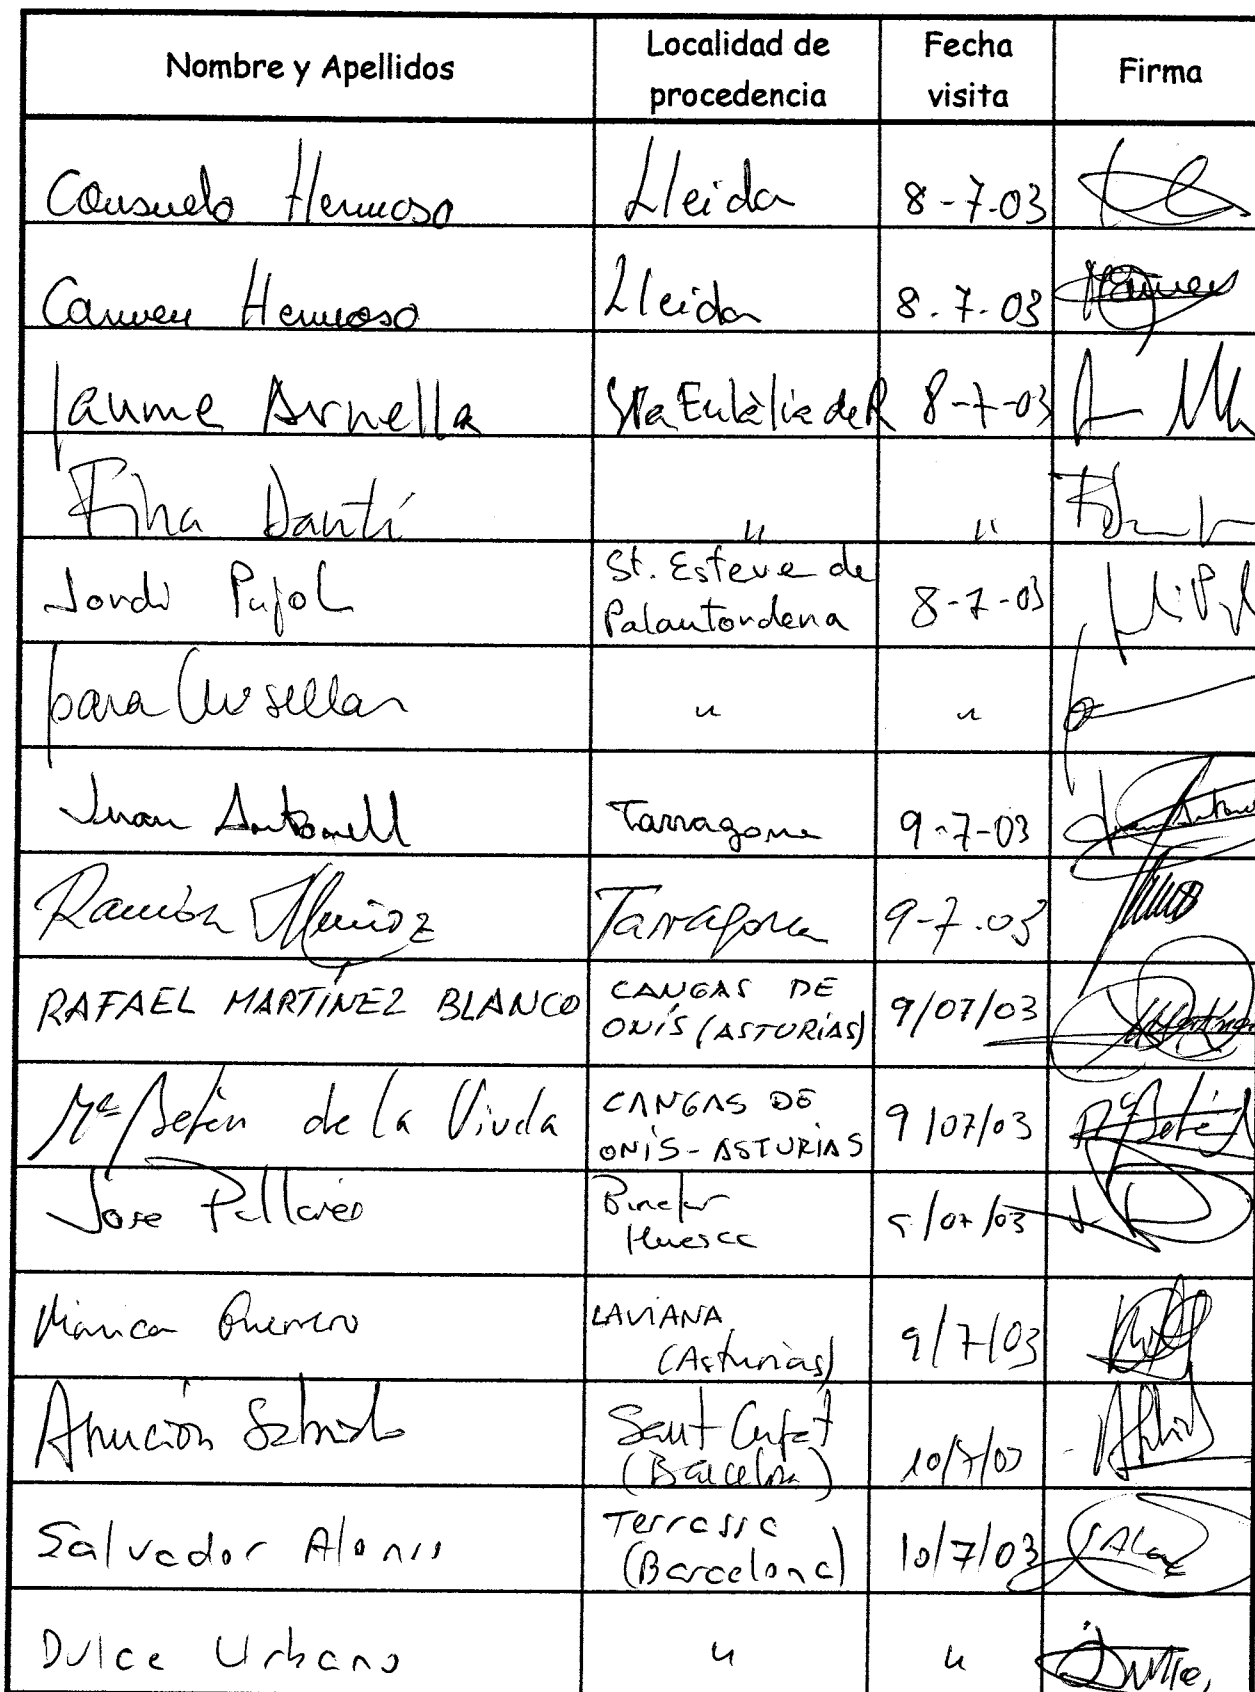 Nombre y Apellidos Localidad de procedencia Fecha visita Firma
Consuelo Hermoso Lleida 8-7-03
Carmen Hermoso Lleida 8.7.03 Carmen
Jaume Arnella Sta Eulàlia de R 8-7-03
Fina Dantí " "
Jordi Pujol St. Esteve de Palautordena 8-7-03
" "
Juan Antonell Tarragona 9-7-03 Juan Antonell
Ramón Muñoz Tarragona 9-7-03
RAFAEL MARTÍNEZ BLANCO CANGAS DE ONÍS (ASTURIAS) 9/07/03
Mª Belén de la Viuda CANGAS DE ONÍS - ASTURIAS 9/07/03 Mª Belén
Jose Pallarés Binefar Huesca 9/07/03
Mónica Guerrero LAVIANA (Asturias) 9/7/03
Anunción Sant Cugat (Barcelona) 10/7/03
Salvador Alonis Terrassa (Barcelona) 10/7/03
Dulce Urbano " " Dulce,